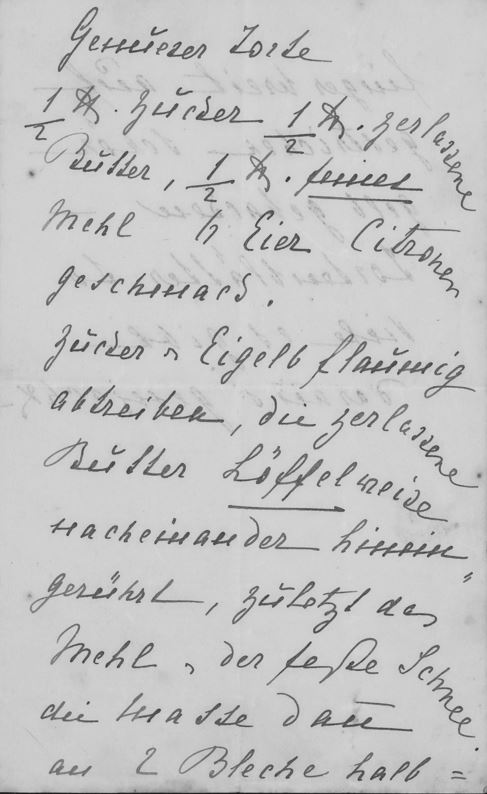 Genueser Torte
1/2 ℔. Zucker 1/2 ℔. zerlassene
Butter, 1/2 ℔. feines
Mehl 4 Eier Citronen
geschmack.
Zucker u Eigelb flaumig
abtreiben, die zerlassene
Butter Löffelweise
nacheinander hinein
gerührt, zuletzt das
Mehl u der feste Schnee.
die Masse dann
an 2 Bleche halb =